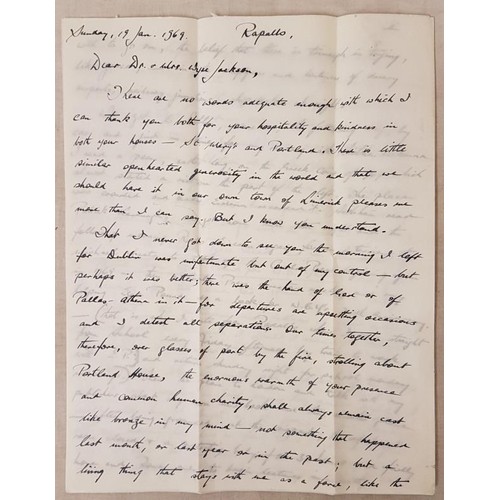 Sunday, 19 Jan. 1969. Rapallo,
Dear Dr. & Mrs. Wyse Jackson,
There are no words adequate enough with which I
can thank you both for your hospitality and kindness in
both your houses — St. Mary's and Portland. There is little
similar openhearted generosity in the world and that we
should have it in our own town of Limerick pleases me
more than I can say. But I know you understand.
That I never got down to see you the morning I left
for Dublin was unfortunate but out of my control — but
perhaps it was better; there was the hand of God or of
Pallas Athena in it — for departures are upsetting occasions
and I detest all separations. Our times together,
therefore, over glasses of port by the fire, strolling about
Portland House, the enormous warmth of your presence
and common human charity, shall always remain cast
like bronze in my mind — not something that happened
last month, or last year or in the past; but a
living thing that stays with me as a force, like the